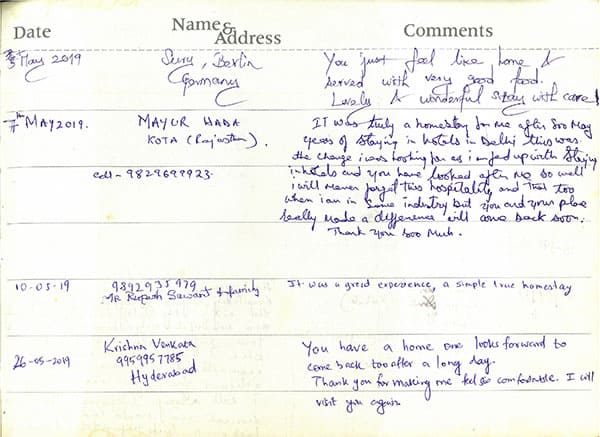 Date Name & Address Comments
May 2019 Sury, Berlin Germany
You just feel like home &
served with very good food.
Lovely & wonderful stay with care!
7th MAY 2019. MAYUR HADA
KOTA (Rajasthan).
cell - 9829699923.
IT was truly a homestay for me after soo may
years of staying in hotels in Delhi this was
the change i was looking for as i am fed up with staying
in hotels and you have looked after me so well
i will never forget this hospitality and that too
when i am in same industry but you and your place
really made a difference will come back soon.
Thank you soo much.
10-05-19 9892935979
Mr Rupesh Sawant & family
It was a great experience, a simple true homestay
26-05-2019 Krishna Venkata
9959957785
Hyderabad
You have a home one looks forward to
come back too after a long day.
Thank you for making me feel so comfortable. I will
visit you again